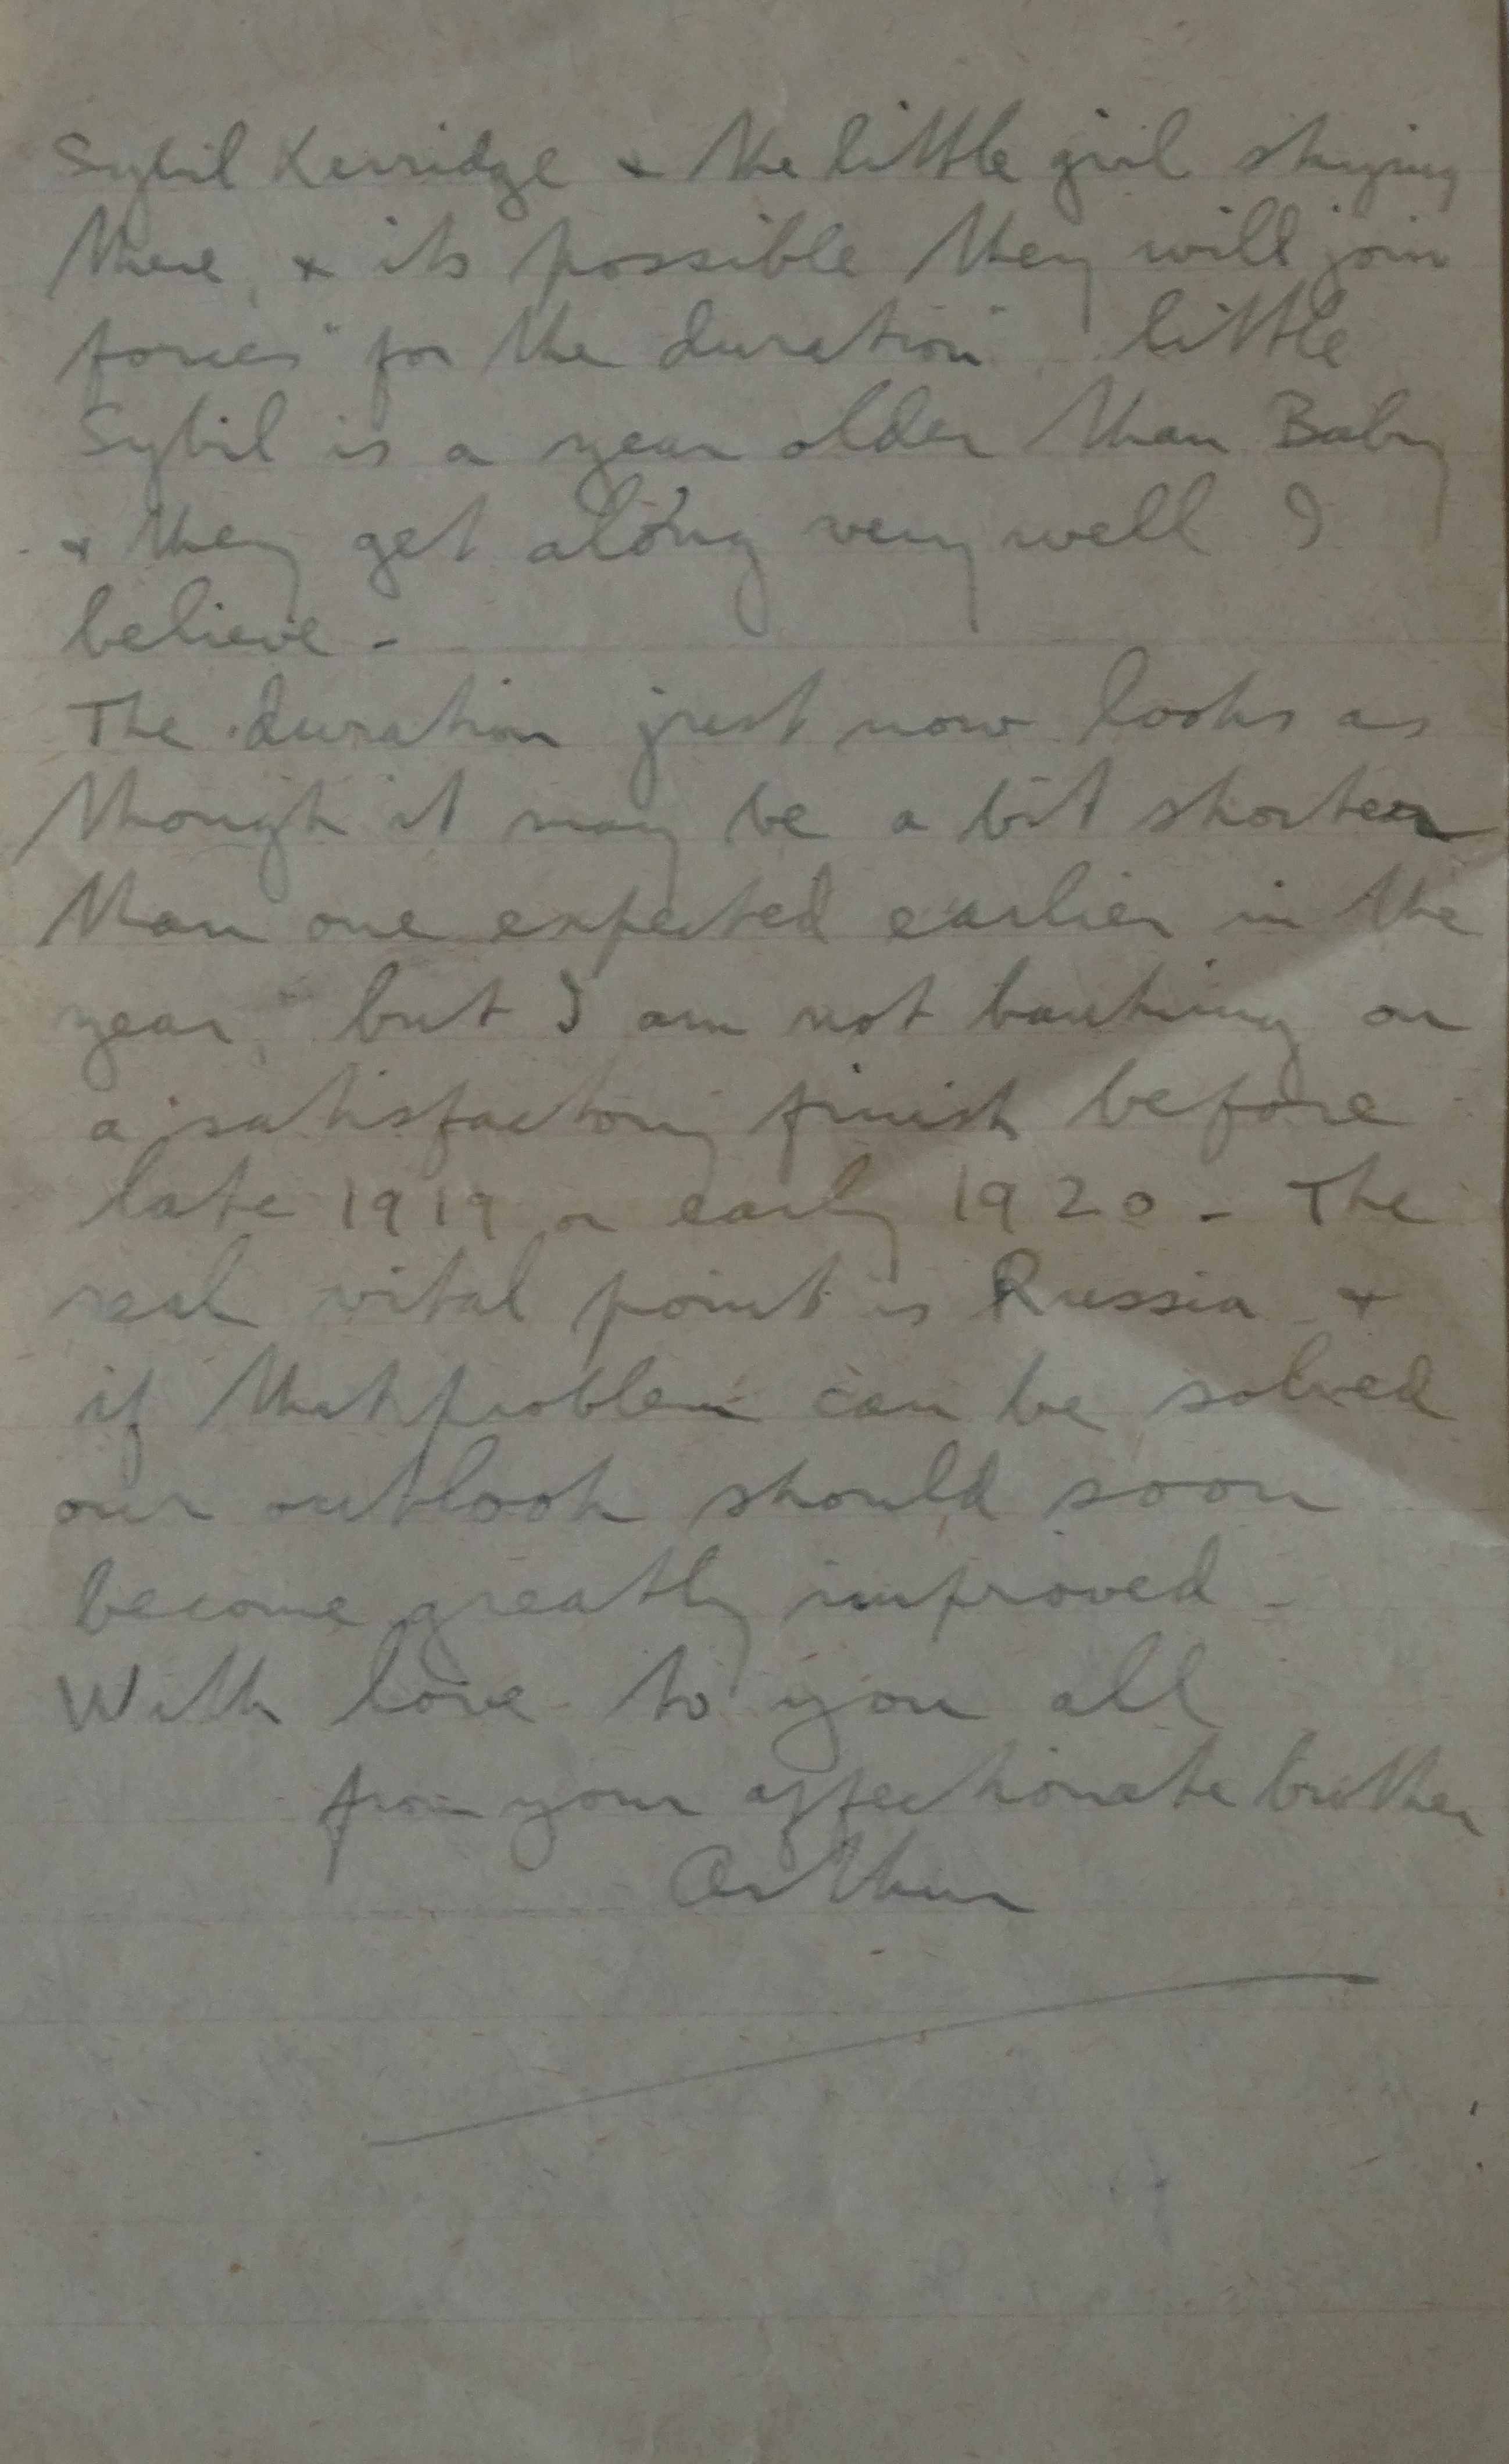 Sybil Kerridge & the little girl staying
there, & its possible they will join
forces "for the duration" little
Sybil is a year older than Baby
& they get along very well I
believe -
The duration just now looks as
though it may be a bit shorter
than one expected earlier in the
year, but I am not banking on
a satisfactory finish before
late 1919 or early 1920 - The
real vital point is Russia &
if that problem can be solved
our outlook should soon
become greatly improved -
With love to you all
from your affectionate brother
Arthur